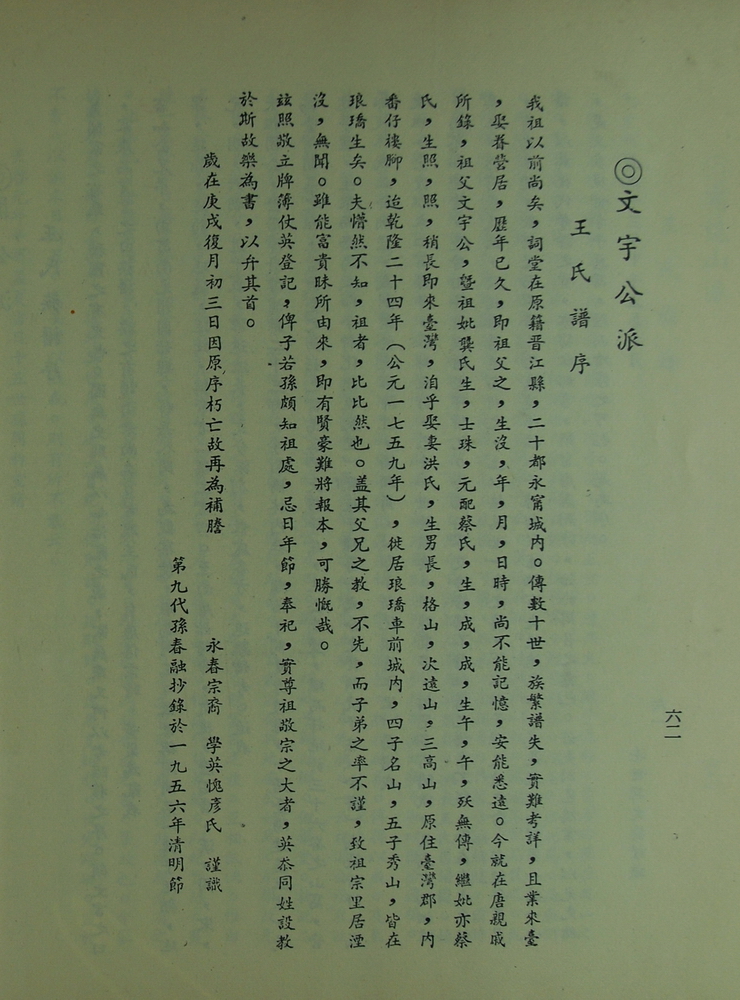 ◎文宇公派
王氏譜序
我祖以前尚矣，詞堂在原籍晋江縣，二十都永甯城内。傳數十世，族繁譜失，實難考詳，且業來臺
，娶眷營居，歷年已久，即祖父之，生沒，年，月，日時，尚不能記憶，安能悉遠。今就在唐親戚
所錄，祖父文宇公，暨祖妣龔氏生，士珠，元配蔡氏，生，成，成，生午，午，殀無傳，繼妣亦蔡
氏，生照，照，稍長即來臺灣，洎乎娶妻洪氏，生男長，格山，次遠山，三高山，原住臺灣郡，内
番仔樓脚，迨乾隆二十四年（公元一七五九年），徙居琅璚車前城内，四子名山，五子秀山，皆在
琅璚生矣。夫懵然不知，祖者，比比然也。盖其父兄之教，不先，而子弟之率不謹，致祖宗里居湮
沒，無聞。雖能富貴昧所由來，即有賢豪難將報本，可勝慨哉。
玆照敬立牌簿仗英登記，俾子若孫頗知祖處，忌日年節，奉祀，實尊祖敬宗之大者，英忝同姓設教
於斯故樂為書，以弁其首。
歲在庚戌復月初三日因原序朽亡故再為補謄
永春宗裔　學英愧彦氏　謹識
第九代孫春融抄錄於一九五六年清明節
六二